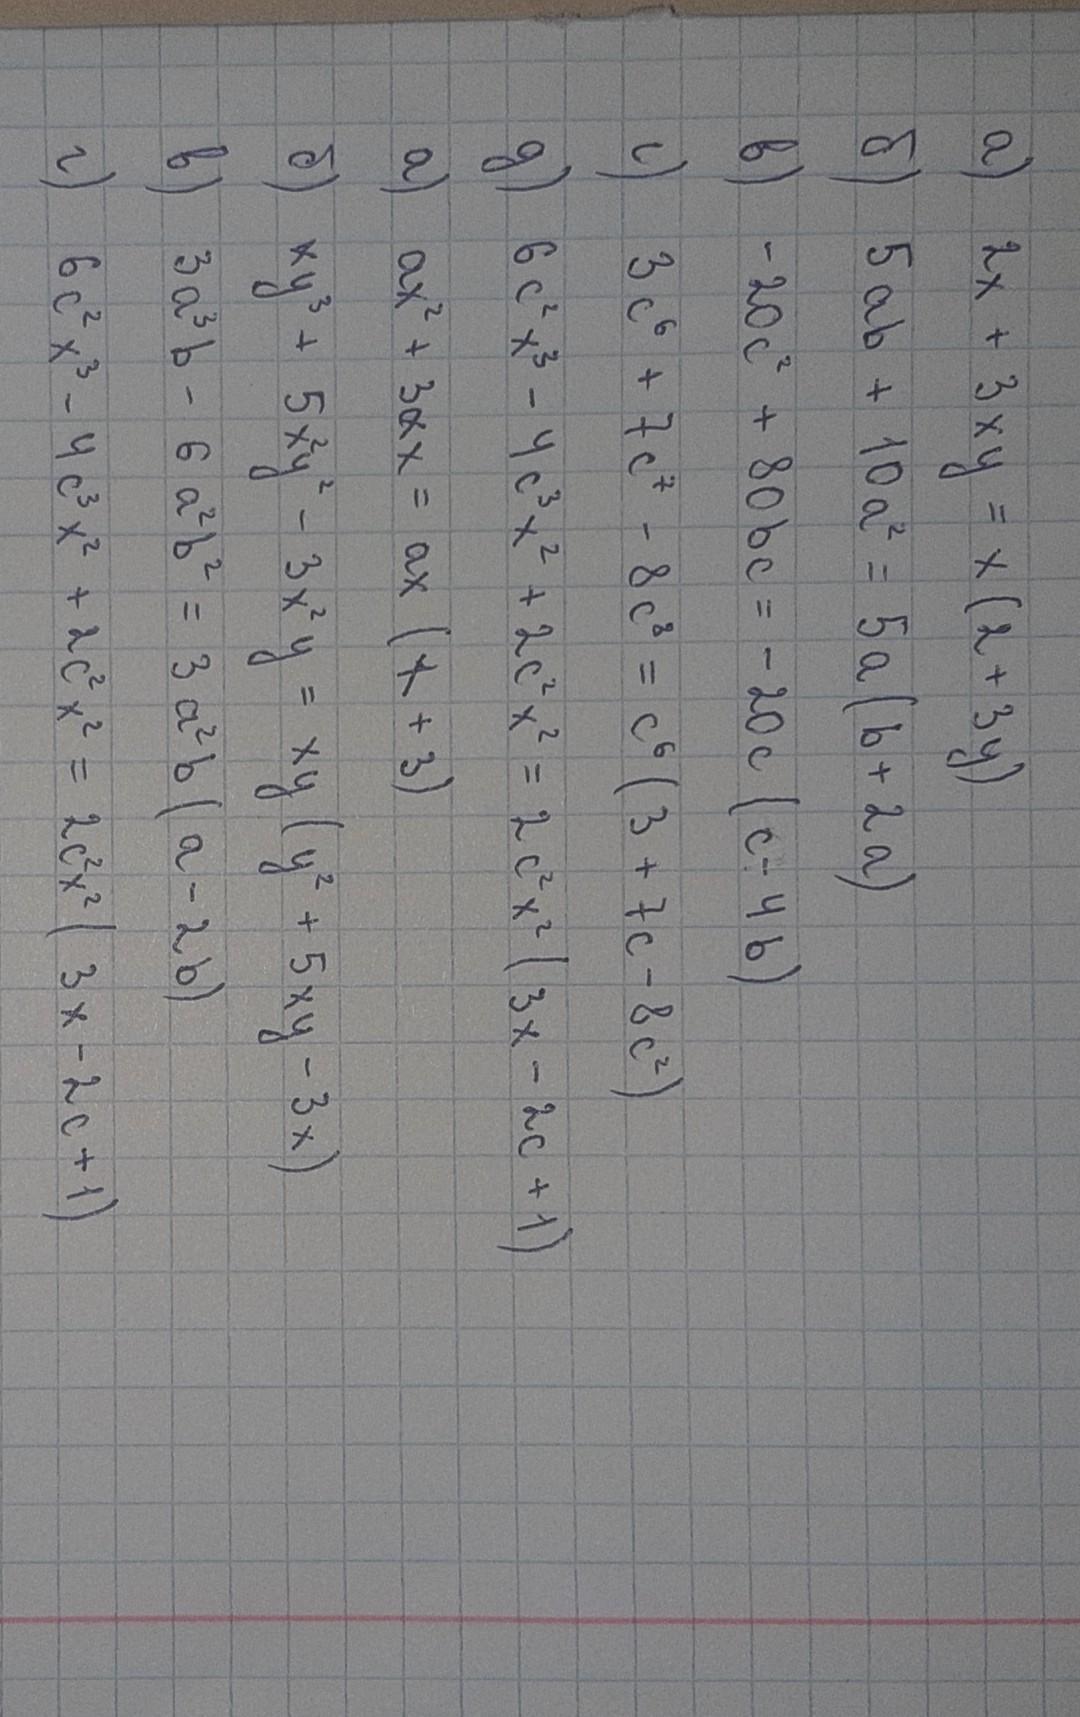 а) 2x + 3xy = x(2+3y)
б) 5ab + 10a² = 5a(b+2a)
в) -20c² + 80bc = -20c (c-4b)
г) 3c⁶ + 7c⁷ - 8c⁸ = c⁶(3+7c-8c²)
д) 6c²x³ - 4c³x² + 2c²x² = 2c²x²(3x-2c+1)
а) ax² + 3ax = ax (x+3)
б) xy³ + 5x²y² - 3x²y = xy(y² + 5xy - 3x)
в) 3a³b - 6a²b² = 3a²b(a-2b)
г) 6c²x³ - 4c³x² + 2c²x² = 2c²x²(3x-2c+1)